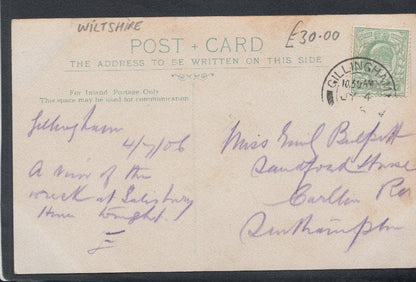 WILTSHIRE
£30.00
POST + CARD
THE ADDRESS TO BE WRITTEN ON THIS SIDE
For Inland Postage Only
This space may be used for communication
GILLINGHAM
10.30AM
JY 4
Gillingham
4/7/06
A View of the
wreck at Salisbury
Home tonight.
Miss
Sandford House
Carlton Rd
Southampton